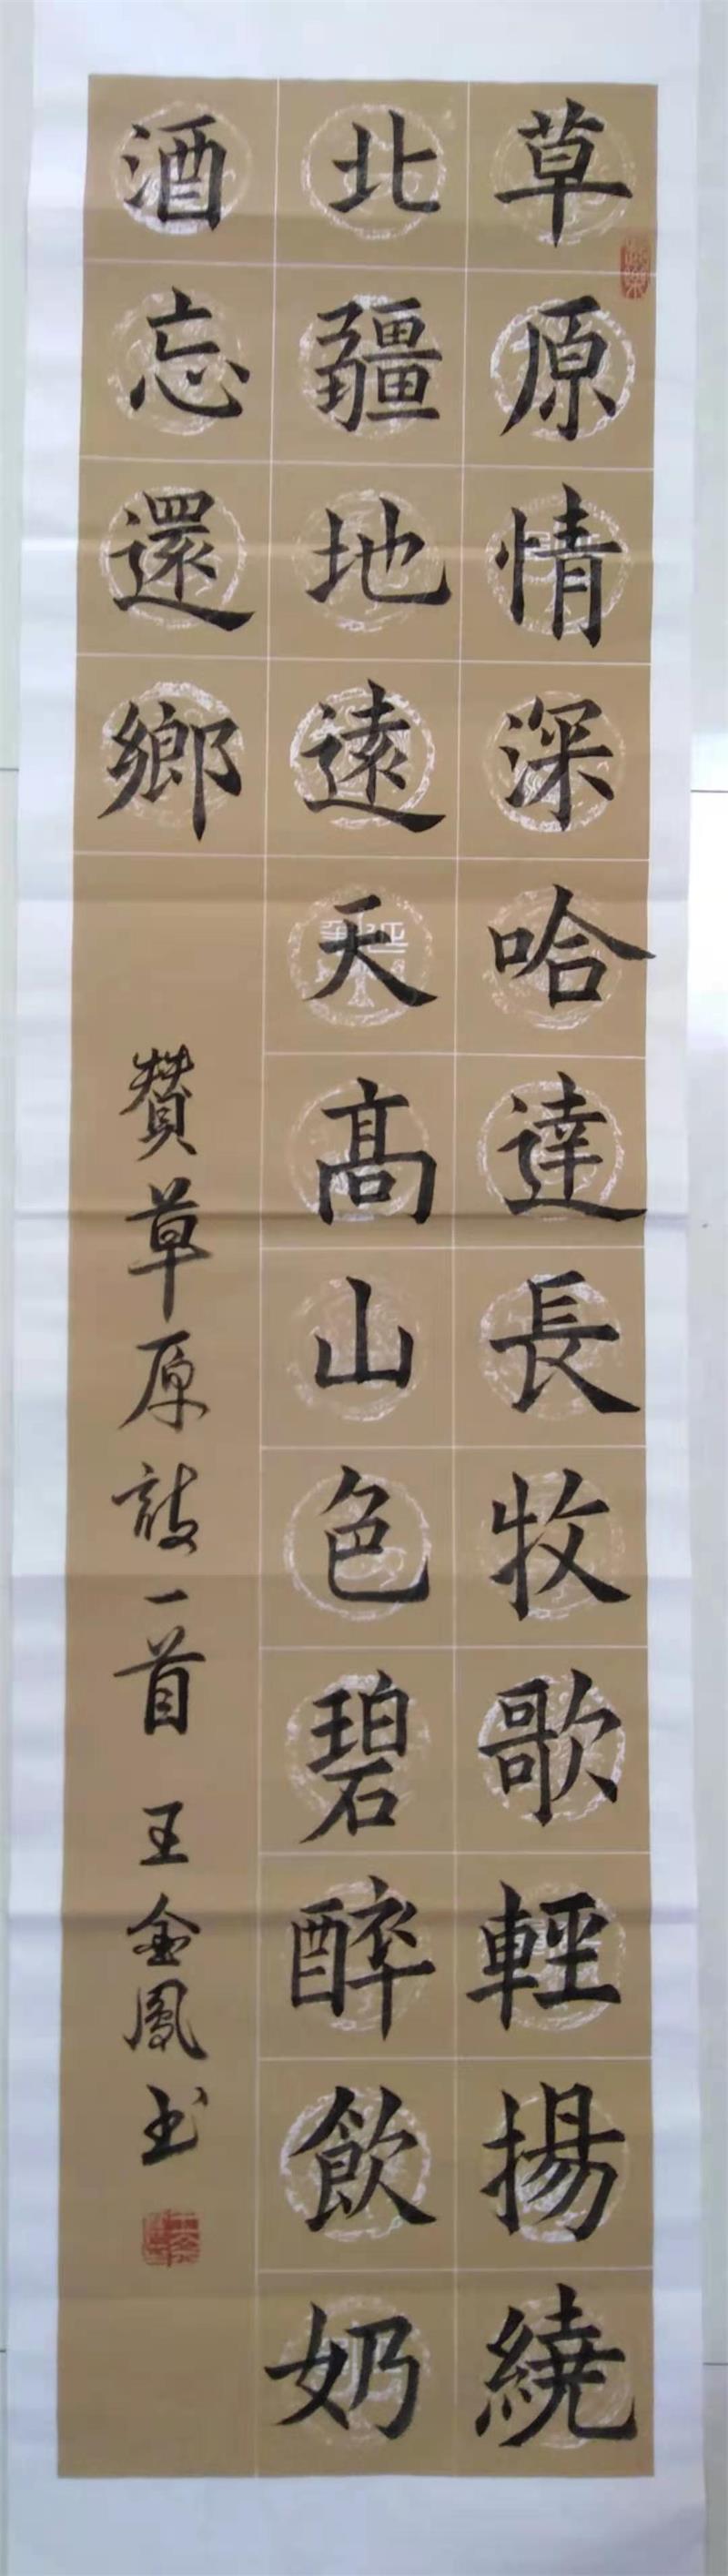 草原情深哈達長牧歌輕揚繞
北疆地遠天高山色碧醉飲奶
酒忘還鄉
贊草原詩一首 王金鳳书